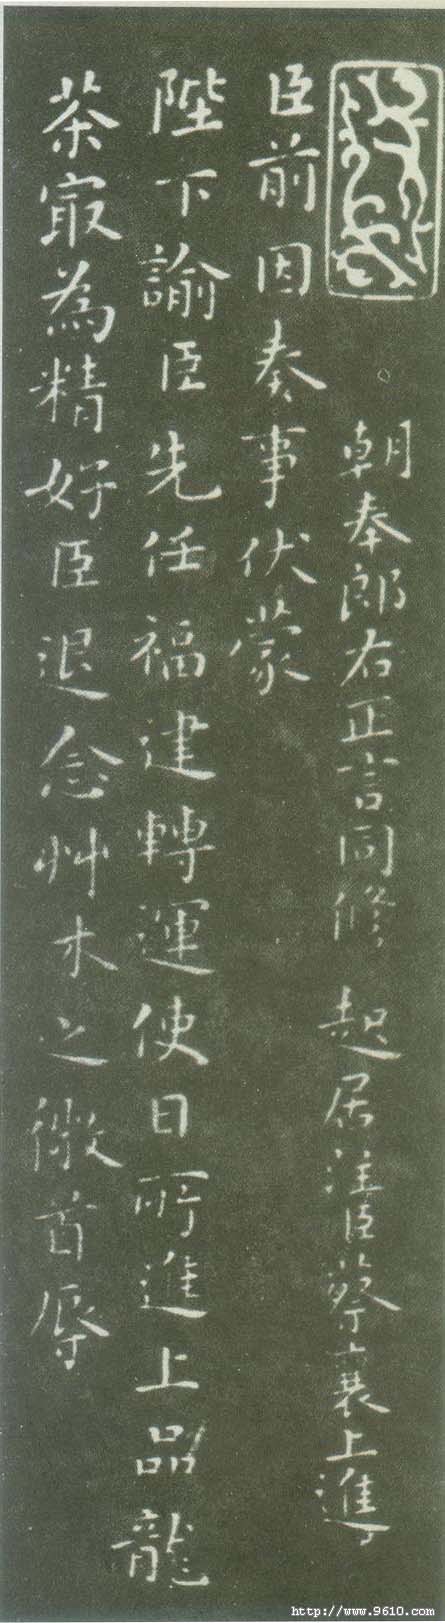 朝奉郎右正言同修起居注臣蔡襄上進
臣前因奏事伏蒙
陛下諭臣先任福建轉運使日所進上品龍
茶㝡為精好臣退念艸木之微首辱
http://www.9610.com